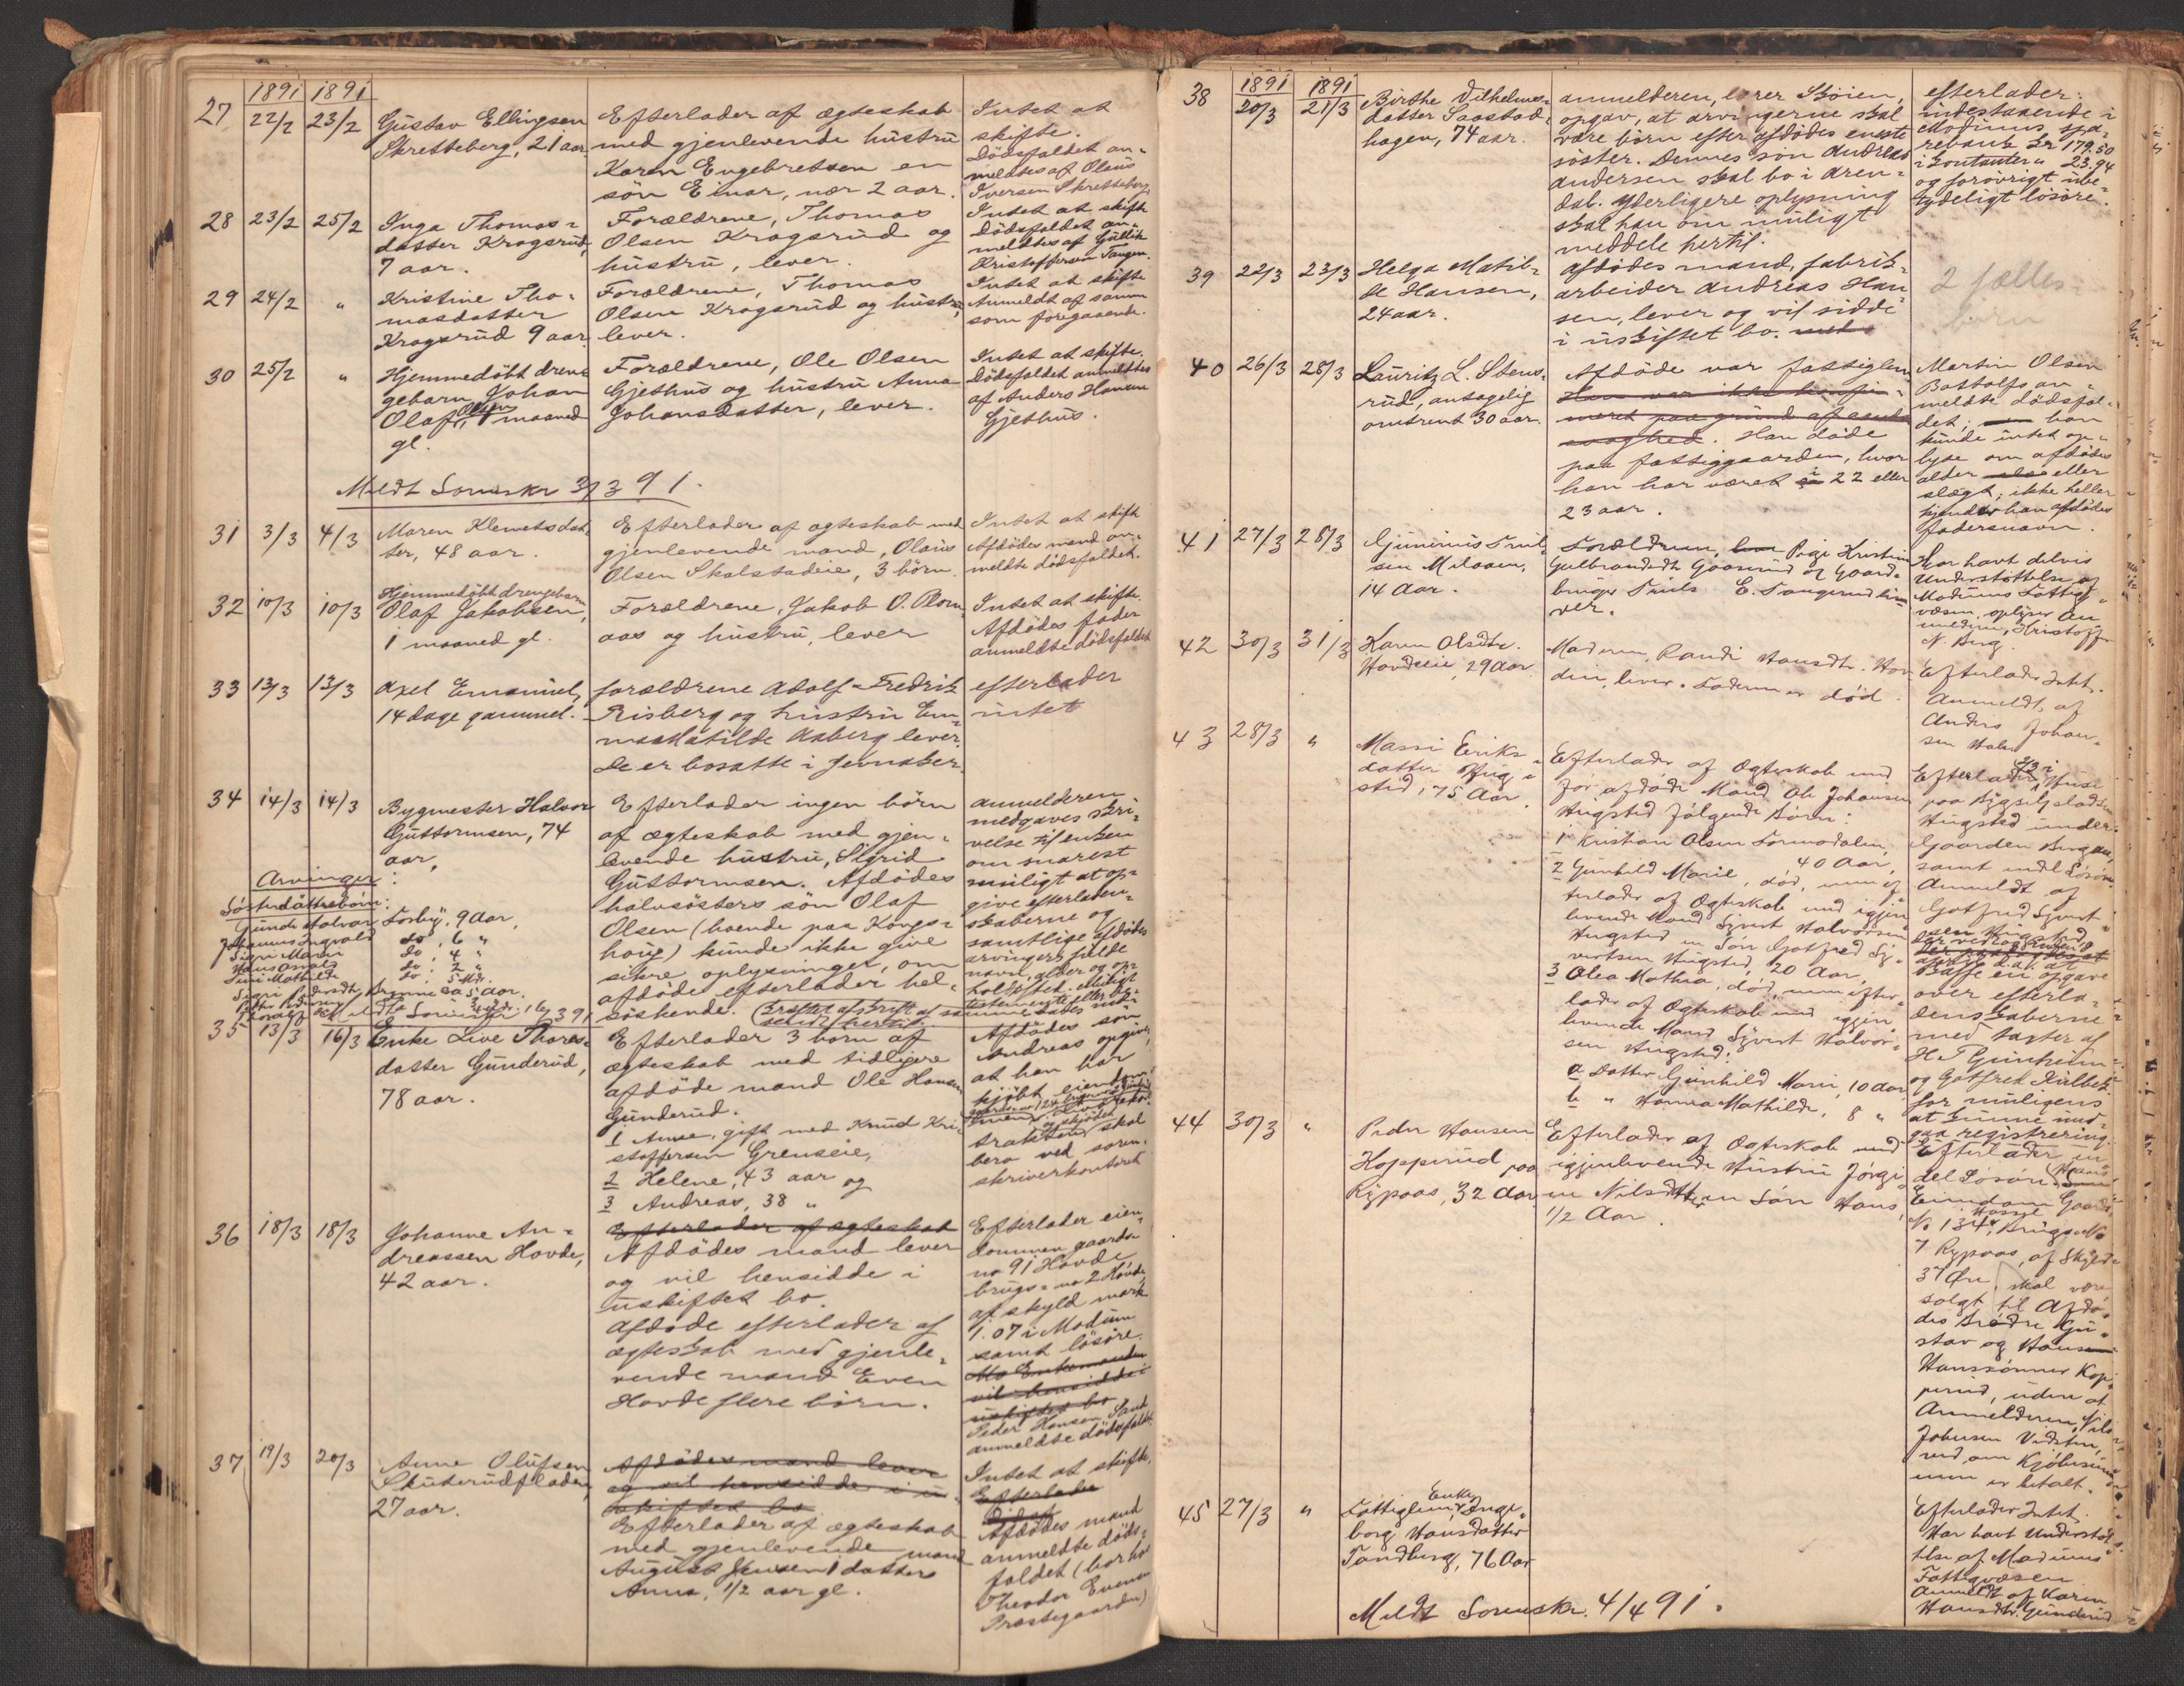 1891 1891
27 22/2 23/2 Gustav Ellingsen
Skretteberg, 21 aar.
Efterlader af ægteskab
med gjenlevende hustru
Karen Engebretsen en
søn Einar, nær 2 aar.
Intet at
skifte.
Dødsfaldet an-
meldtes af Olaus
Iversen Skretteberg
28 23/2 25/2 Inga Thomas-
datter Kragsrud,
7 aar.
Forældrene, Thomas
Olsen Kragsrud og
hustru, lever.
Intet at skifte
Dødsfaldet an-
meldtes af Gullik
Kristoffersen Tangen.
29 24/2 " Kristine Tho-
masdatter
Kragsrud 9 aar.
Forældrene, Thomas
Olsen Kragsrud og hustru,
lever.
Intet at skifte
Anmeldt af samme
som foregaaende.
30 25/2 " Hjemmedøbt dren-
gebarn Johan
Olaf Olsen, 1 maaned
gl.
Forældrene, Ole Olsen
Gjethus og hustru Anna
Johansdatter, lever.
Intet at skifte.
Dødsfaldet anmeldtes
af Anders Hansen
Gjethus.
Meldt Sorenskr 3/3 91.
31 3/3 4/3 Maren Klemetsdat-
ter, 48 aar.
Efterlader af ægteskab med
gjenlevende mand, Olaus
Olsen Skalstadeie, 3 børn.
Intet at skifte
Afdødes mand an-
meldte dødsfaldet.
32 10/3 10/3 Hjemmedøbt drengebarn
Olaf Jakobsen,
1 maaned gl.
Forældrene, Jakob O. Plom-
aas og hustru, lever
Intet at skifte.
Afdødes fader
anmeldte dødsfaldet
33 13/3 13/3 Axel Emanuel,
14 dage gammel.
forældrene Adolf Fredrik
Risberg og hustru Em-
ma Matilde Aaberg lever.
De er bosatte i Jevnaker
efterlader
intet
34 14/3 14/3 Bygmester Halvor
Guttormsen, 74
aar,
Efterlader ingen børn
af ægteskab med gjen-
levende hustru, Sigrid
Guttormsen. Afdødes
halvsøsters søn Olaf
Olsen (boende paa Kongs-
haug) kunde ikke give
sikre oplysninger, om
afdøde efterlader hel-
søskende.
anmelderen
medgaves skri-
velse til enken
om snarest
muligt at op-
give efterladen-
skaberne og
samtlige afdødes
arvingers fulde
navn, alder og op-
holdssted. Muligt
testamente eller
Arvinger:
Søsterdatterbørn:
Gunda Halvor Foseby, 9 Aar,
Johannes Ingvald do, 6 "
Signe Marie do, 4 "
Hans Oswald do, 2 "
35 13/3 16/3 Enke Live Thores-
datter Gunderud,
78 aar.
Efterlader 3 børn af
ægteskab med tidligere
afdøde mand Ole Hansen
Gunderud.
1 Anne, gift med Knud Kri-
stoffersen Grenseie,
2 Helene, 43 aar og
3 Andreas, 38 "
Afdødes søn
Andreas opgiver,
at han har
kjøbt eiendom-
skal
bero ved soren-
skriverkontoret
36 18/3 18/3 Johanne An-
dreassen Hovde,
42 aar.
Efterlader af ægteskab
Afdødes mand lever
og vil hensidde i
uskiftet bo.
Afdøde efterlader af
ægteskab med gjenle-
vende mand Even
Hovde flere børn.
Efterlader eien-
dommen gaards-
no 91 Hovde
brugs-no 2 Hovde,
af skyld mark
1.07 i Modum
samt løsøre.
vil hensidde i
uskiftet bo
Peder Hansen Sand
anmeldte dødsfaldet.
37 19/3 20/3 Anne Olufsen
Skuterudfladen,
27 aar.
Afdødes mand lever
og vil hensidde i u-
skiftet bo
Efterlader af ægteskab
med gjenlevende mand
August Jensen 1 datter
Anna, 1/2 aar gl.
Intet at skifte.
Efterlader
Afdødes mand
anmeldte døds-
faldet (bor hos
Theodor Evensen
Præstegaarden)
1891 1891
38 20/3 21/3 Birthe Vilhelms-
datter Saastad-
hagen, 74 aar.
anmelderen, lærer Skøien,
opgav, at arvingerne skal
være børn efter afdødes eneste
søster. Dennes søn Andreas
Andersen skal bo i Aren-
dal. Yderligere oplysning
skal han om muligt
meddele hertil.
efterlader:
indestaaende i
Modums spa-
rebank kr 179.50
i kontanter " 23.94
og forøvrigt ube-
tydeligt løsøre.
39 22/3 23/3 Helga Matil-
de Hansen,
24 aar.
Afdødes mand, fabrik-
arbeider Andreas Han-
sen, lever og vil sidde
i uskiftet bo. med
2 fælles-
børn
40 26/3 28/3 Lauritz L. Stens-
rud, antagelig
omtrent 30 aar.
Afdøde var fattiglem
Han var ikke konfir-
meret paa grund af aands-
svaghed. Han døde
paa fattiggaarden, hvor
han har været i 22 eller
23 aar.
Martin Olsen
Bottolfs an-
meldte dødsfal-
det; han
kunde intet op-
lyse om afdødes
alder eller
slægt; ikke heller
kjender han afdødes
fadersnavn.
41 27/3 28/3
14 Aar.
Forældrene, Pige Kristine
Gulbrandsdt. Gaaserud og Gaard-
bruger Truls E. Tangerud le-
ver.
Har havt delvis
Understøttelse af
Modums Fattig-
væsen, oplyser An-
melderen, Kristoffer
N. Berg.
42 30/3 31/3 Karen Olsdtr.
Hovdeeie, 29 Aar.
Moderen, Randi Hansdtr. Hov-
deie, lever. Faderen er død.
Efterlader Intet.
Anmeldt af
Anders Johan-
sen
43 28/3 " Massi Eriks-
datter Hug-
sted, 75 Aar.
Efterlader af Ægteskab med
før afdøde Mand Ole Johansen
Hugsted følgende Børn:
1 Kristian Olsen Formodalen,
40 Aar,
2 Gunhild Marie, død, men ef-
terlader af Ægteskab med igjen-
levende Mand Syvert Halvorsen
Hugsted en Søn Gotfred Sy-
vertsen Hugsted, 20 Aar,
3 Olea Mathea, død, men efter-
lader af Ægteskab med igjen-
levende Mand Syvert Halvor-
sen Hugsted:
a Datter Gunhild Marie, 10 Aar
b " Hanna Mathilde, 8 "
Efterlader 1/3 i Huse
paa Bygselpladsen
Hugsted under
Gaarden Berg
samt endel Løsøre.
Anmeldt af
Gotfred Syvert-
sen Hugsted
Baffe en opgave
over efterla-
denskaberne
med takster af
H. T. Gunheim
og Gotfred Kulbek
for muligens
at kunne und-
gaa registrering.
44 30/3 " Peder Hansen
Kopperud paa
Rypaas, 32 Aar
Efterlader af Ægteskab med
igjenlevende Hustru Jørgi-
ne Nilsdtter en Søn Hans,
1/2 Aar.
Efterlader en
del Løsøre. Hans
Eiendom Gaards-
No 134, Brugs-No
7 Rypaas, af Skyld
37 Øre, skal være
solgt til Afdø-
des Brødre Gu-
stav og Hans
Hanssønner Kop-
perud, uden at
Anmelderen, Nils
Johnsen
ved om Kjøbesum-
men er betalt.
45 27/3 " Fattiglem, Enke Inge-
borg Hansdatter
Tandberg, 76 Aar
Efterlader Intet.
Har havt Understøt-
telse af Modums
Fattigvæsen
Anmeldt af Karen
Hansdtr. Gunderud
Meldt Sorenskr. 4/4 91.